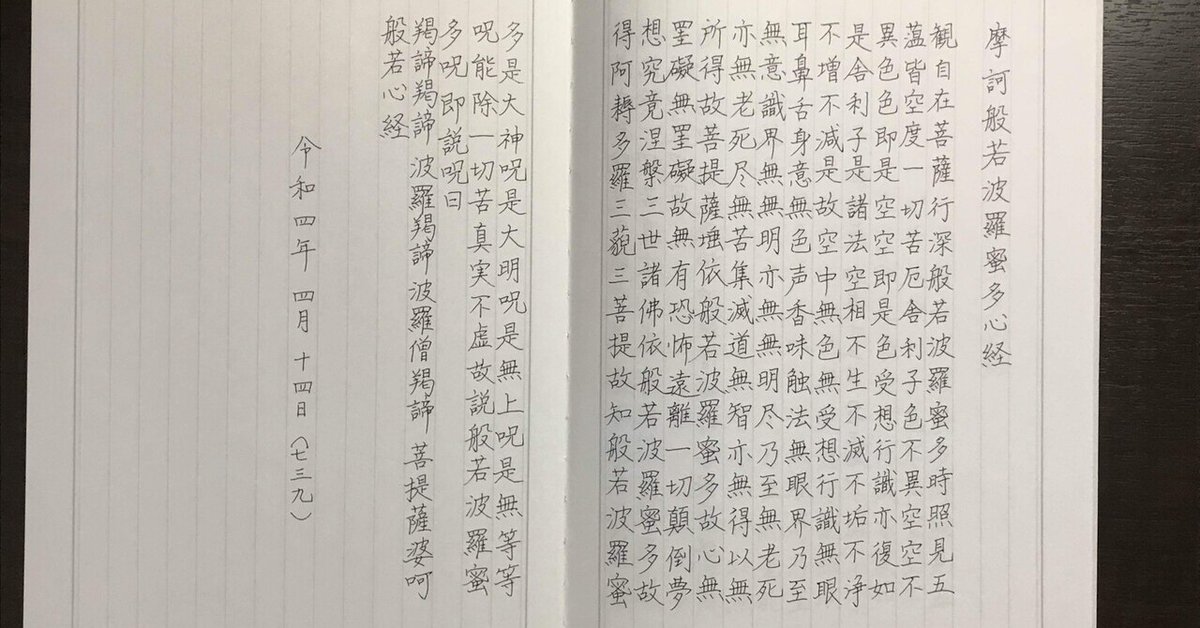 摩訶般若波羅蜜多心経
観自在菩薩行深般若波羅蜜多時照見五
蘊皆空度一切苦厄舎利子色不異空空不
異色色即是空空即是色受想行識亦復如
是舎利子是諸法空相不生不滅不垢不浄
不増不減是故空中無色無受想行識無眼
耳鼻舌身意無色声香味触法無眼界乃至
無意識界無無明亦無無明尽乃至無老死
亦無老死尽無苦集滅道無智亦無得以無
所得故菩提薩埵依般若波羅蜜多故心無
罣礙無罣礙故無有恐怖遠離一切顛倒夢
想究竟涅槃三世諸佛依般若波羅蜜多故
得阿耨多羅三藐三菩提故知般若波羅蜜
多是大神呪是大明呪是無上呪是無等等
呪能除一切苦真実不虚故説般若波羅蜜
多呪即説呪曰
羯諦羯諦 波羅羯諦波羅僧羯諦 菩提薩婆呵
般若心経
令和四年 四月 十四日(七三九)